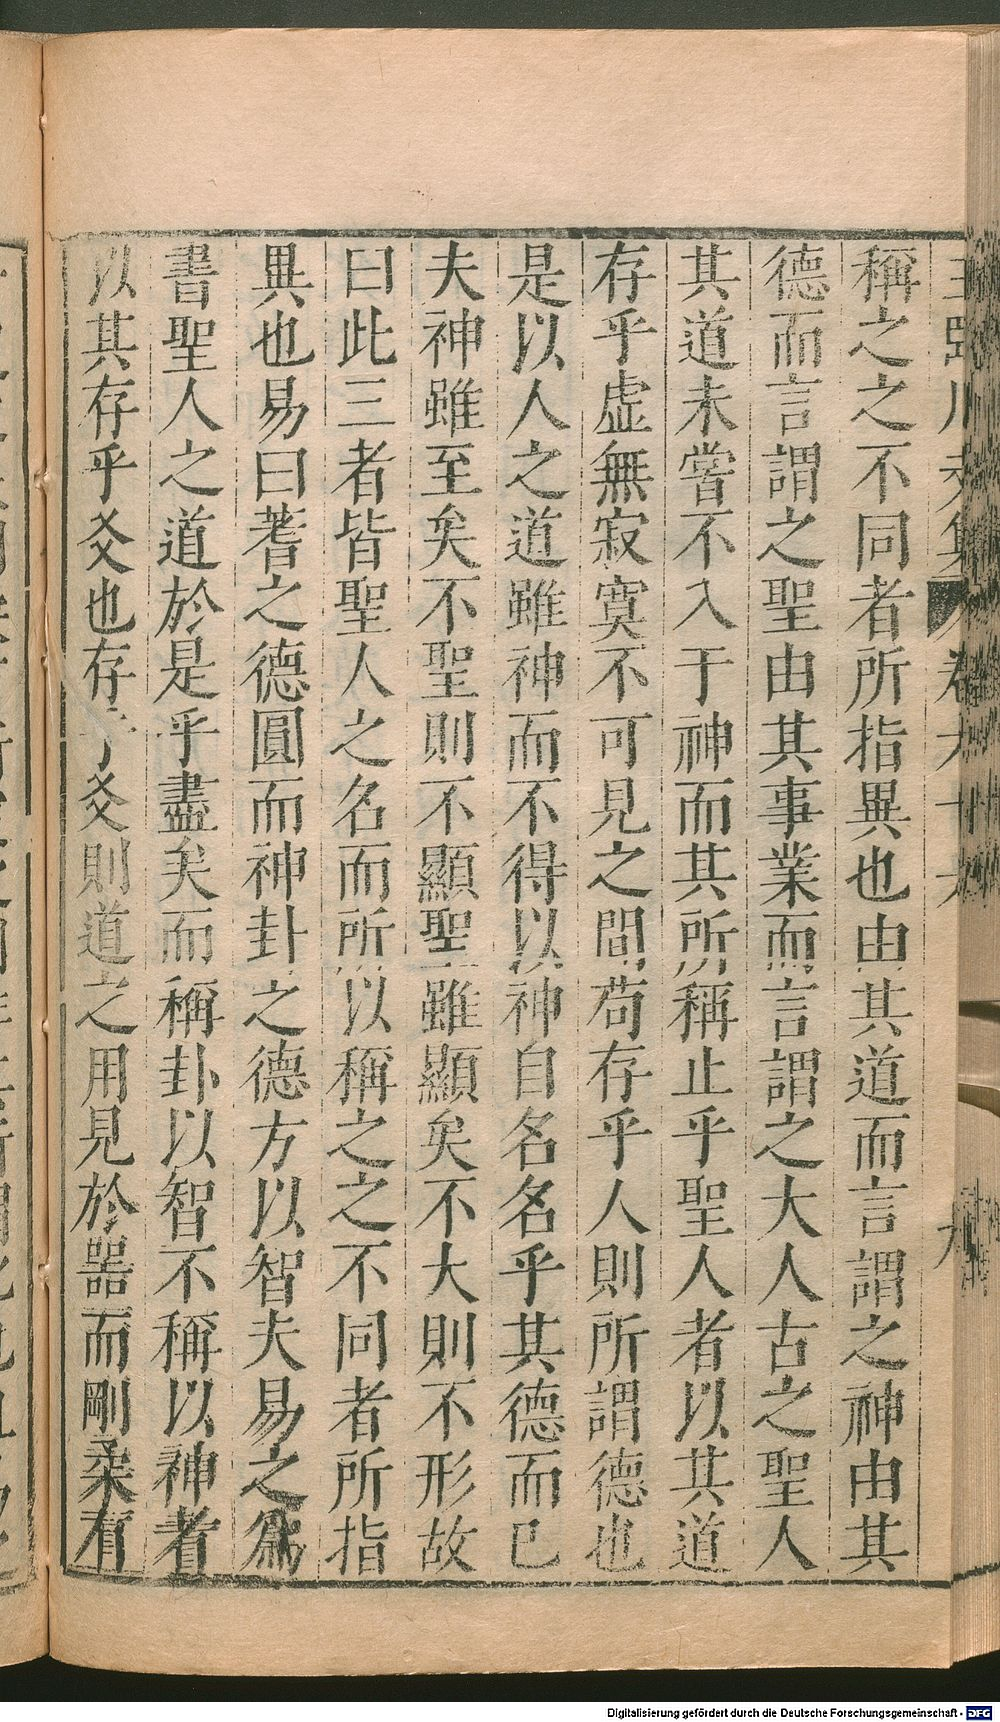 稱之之不同者所指異也由其道而言謂之神由其
德而言謂之聖由其事業而言謂之大人古之聖人
其道未嘗不入于神而其所稱止乎聖人者以其道
存乎虛無寂寞不可見之間苟存乎人則所謂德也
是以人之道雖神而不得以神自名名乎其德而已
夫神雖至矣不聖則不顯聖雖顯矣不大則不形故
曰此三者皆聖人之名而所以稱之之不同者所指
異也易曰蓍之德圓而神卦之德方以智夫易之為
書聖人之道於是乎盡矣而稱卦以智不稱以神者
以其存乎爻也存乎爻則道之用見於器而剛柔有
Digitalisierung gefördert durch die Deutsche Forschungsgemeinschaft - DFG